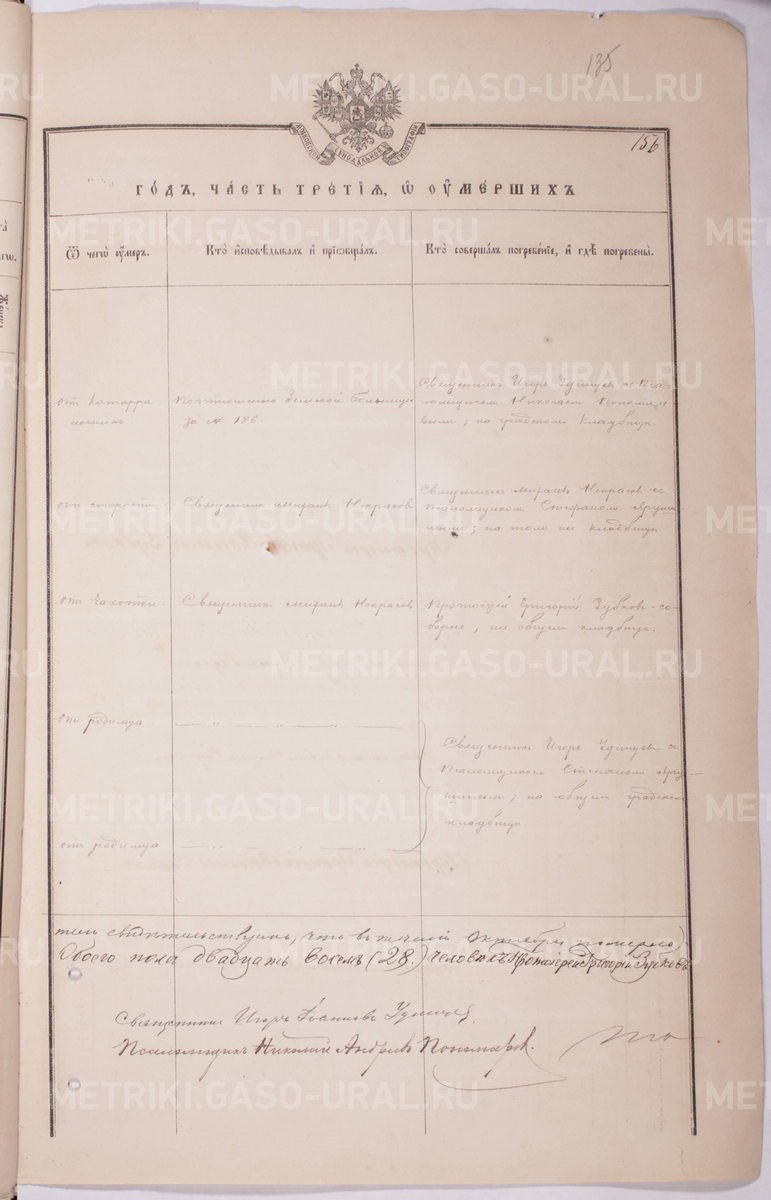 135
156
МОСКОВСКОЙ СѴНОДАЛЬНОЙ ТИПОГРАФІИ
ГОДЪ, ЧАСТЬ ТРЕТІЯ, Ѡ ОУМЕРШИХЪ
Ѿ чегѡ оумеръ.
Кто исповѣдывалъ и приобщалъ.
Кто совершалъ погребеніе, и гдѣ погребены.
отъ катарра
за № 186.
Священникъ Игорь Удинцев съ Пса-
ломщикомъ Николаемъ
; на градскомъ кладбищѣ.
отъ старости
Священникъ Михаилъ Некрасовъ
Священникъ Михаилъ Некрасовъ съ
Псаломщикомъ Стефаномъ
; на томъ же кладбищѣ
отъ чахотки
Священникъ Михаилъ Некрасовъ
Протоіерей Григорій Зубковъ со-
борне, на общемъ кладбищѣ.
отъ родимца
— „ — „ — „ —
Священникъ Игорь Удинцевъ съ
Псаломщикомъ Стефаномъ
; на общемъ градскомъ
кладбищѣ
отъ родимца
— „ — „ — „ —
свидѣтельствуемъ, что въ теченіи Октября померло
Обоего пола двадцать восемь (28.) человѣкъ Протоіерей Григорій Зубковъ
Священникъ Игорь Іоанновъ Удинцев
Псаломщикъ Николай Андреевъ Пономарев.
METRIKI.GASO-URAL.RU